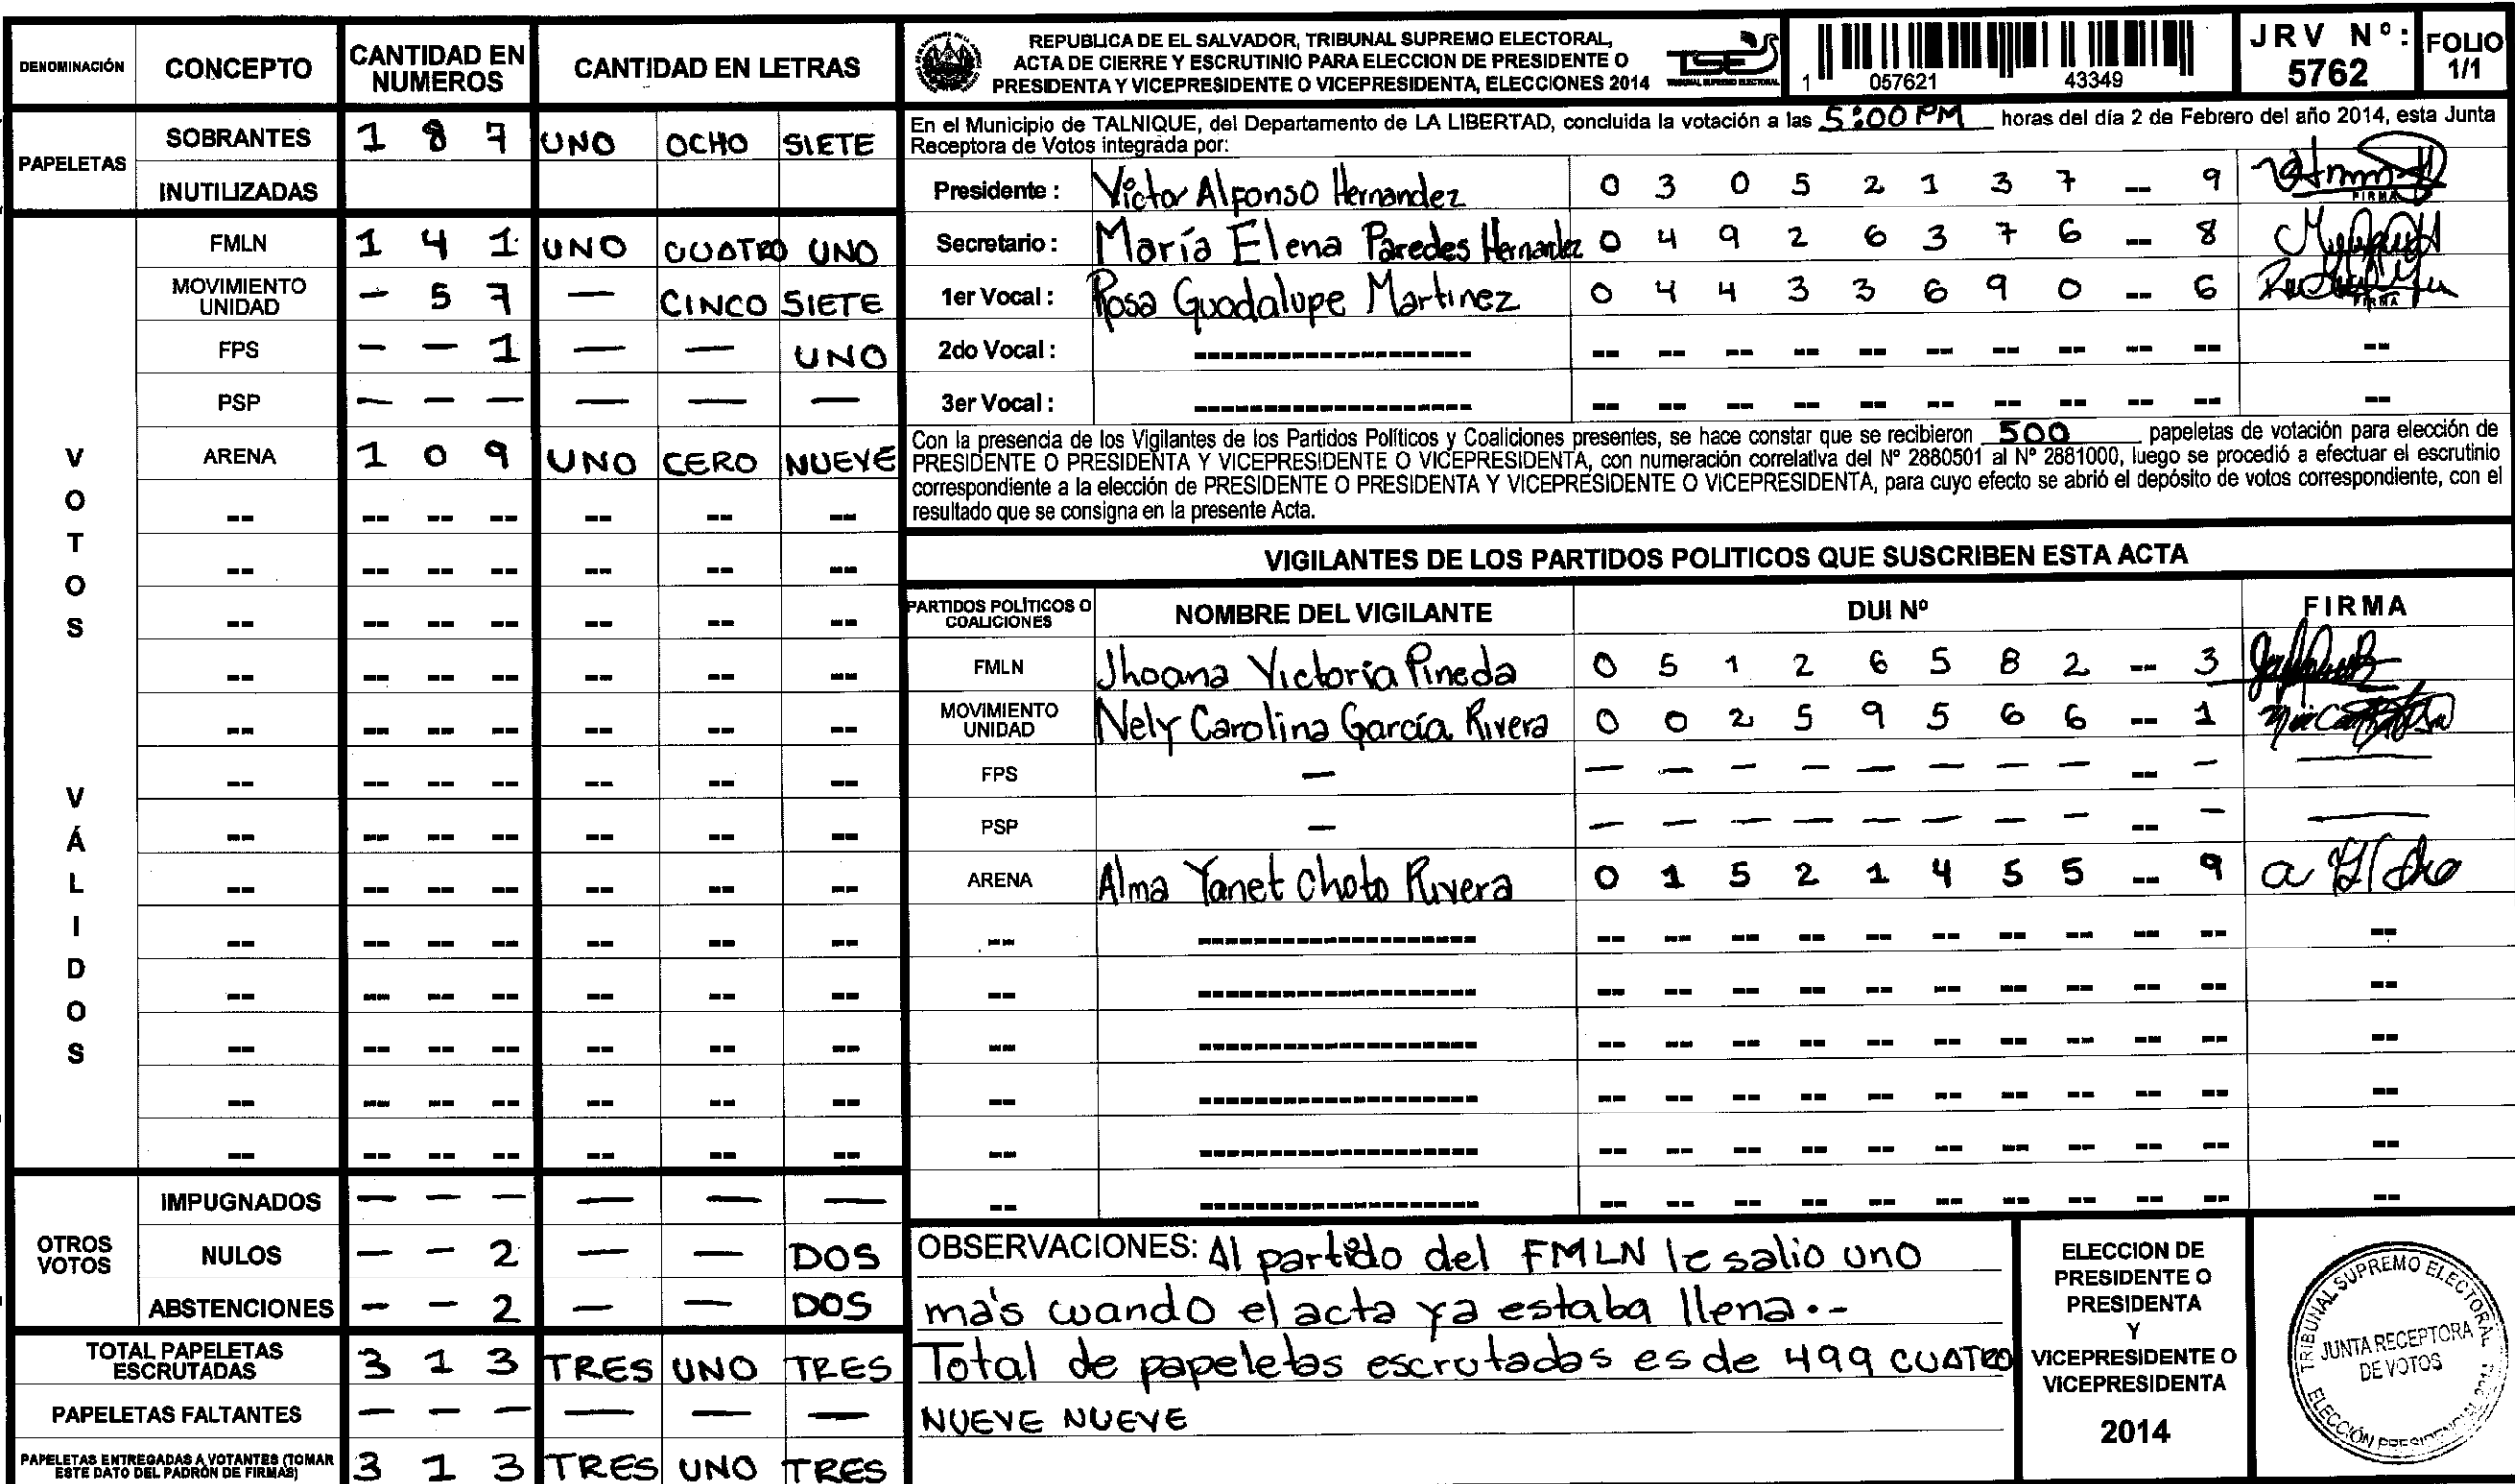 DENOMINACIÓN CONCEPTO CANTIDAD EN NUMEROS CANTIDAD EN LETRAS
PAPELETAS
SOBRANTES 1 8 7 UNO OCHO SIETE
INUTILIZADAS
VOTOS VÁLIDOS
FMLN 1 4 1 UNO CUATRO UNO
MOVIMIENTO UNIDAD - 5 7 — CINCO SIETE
FPS - - 1 — — UNO
PSP - - - — — —
ARENA 1 0 9 UNO CERO NUEVE
OTROS VOTOS
IMPUGNADOS - - - — — —
NULOS - - 2 — — DOS
ABSTENCIONES - - 2 — — DOS
TOTAL PAPELETAS ESCRUTADAS 3 1 3 TRES UNO TRES
PAPELETAS FALTANTES - - - — — —
PAPELETAS ENTREGADAS A VOTANTES (TOMAR ESTE DATO DEL PADRÓN DE FIRMAS) 3 1 3 TRES UNO TRES
REPUBLICA DE EL SALVADOR, TRIBUNAL SUPREMO ELECTORAL,
ACTA DE CIERRE Y ESCRUTINIO PARA ELECCION DE PRESIDENTE O
PRESIDENTA Y VICEPRESIDENTE O VICEPRESIDENTA, ELECCIONES 2014
TSE
TRIBUNAL SUPREMO ELECTORAL
1 057621 43349
JRV Nº: 5762
FOLIO 1/1
En el Municipio de TALNIQUE, del Departamento de LA LIBERTAD, concluida la votación a las 5:00 PM horas del día 2 de Febrero del año 2014, esta Junta
Receptora de Votos integrada por:
Presidente : Víctor Alfonso Hernandez 0 3 0 5 2 1 3 7 -- 9 FIRMA
Secretario : María Elena Paredes Hernandez 0 4 9 2 6 3 7 6 -- 8
1er Vocal : Rosa Guadalupe Martinez 0 4 4 3 3 6 9 0 -- 6 FIRMA
2do Vocal :
3er Vocal :
Con la presencia de los Vigilantes de los Partidos Políticos y Coaliciones presentes, se hace constar que se recibieron 500 papeletas de votación para elección de
PRESIDENTE O PRESIDENTA Y VICEPRESIDENTE O VICEPRESIDENTA, con numeración correlativa del Nº 2880501 al Nº 2881000, luego se procedió a efectuar el escrutinio
correspondiente a la elección de PRESIDENTE O PRESIDENTA Y VICEPRESIDENTE O VICEPRESIDENTA, para cuyo efecto se abrió el depósito de votos correspondiente, con el
resultado que se consigna en la presente Acta.
VIGILANTES DE LOS PARTIDOS POLITICOS QUE SUSCRIBEN ESTA ACTA
PARTIDOS POLÍTICOS O COALICIONES NOMBRE DEL VIGILANTE DUI Nº FIRMA
FMLN Jhoana Victoria Pineda 0 5 1 2 6 5 8 2 -- 3
MOVIMIENTO UNIDAD Nely Carolina García Rivera 0 0 2 5 9 5 6 6 -- 1
FPS — - - - - - - - - -- -
PSP — - - - - - - - - -- -
ARENA Alma Yanet Choto Rivera 0 1 5 2 1 4 5 5 -- 9
OBSERVACIONES: Al partido del FMLN le salio uno
más cuando el acta ya estaba llena.-
Total de papeletas escrutadas es de 499 CUATRO
NUEVE NUEVE
ELECCION DE
PRESIDENTE O
PRESIDENTA
Y
VICEPRESIDENTE O
VICEPRESIDENTA
2014
TRIBUNAL SUPREMO ELECTORAL
JUNTA RECEPTORA
DE VOTOS